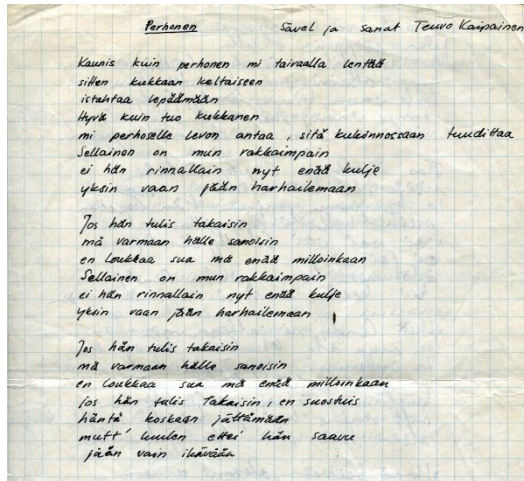 Perhonen Sävel ja sanat Teuvo Kaipainen
Kaunis kuin perhonen mi taivaalla lentää
sitten kukkaan keltaiseen
istahtaa lepäämään
Hyvä kuin tuo kukkanen
mi perhoselle levon antaa, sitä kukinnossaan tuudittaa
Sellainen on mun rakkaimpain
ei hän rinnallain nyt enää kulje
yksin vaan jään harhailemaan
Jos hän tulis takaisin
mä varmaan hälle sanoisin
en loukkaa sua mä enää milloinkaan
Sellainen on mun rakkaimpain
ei hän rinnallain nyt enää kulje
yksin vaan jään harhailemaan
Jos hän tulis takaisin
mä varmaan hälle sanoisin
en loukkaa sua mä enää milloinkaan
jos hän tulis Takaisin, en suostuis
häntä koskaan jättämään
mutt' luulen ettei hän saavu
jään vain ikävään